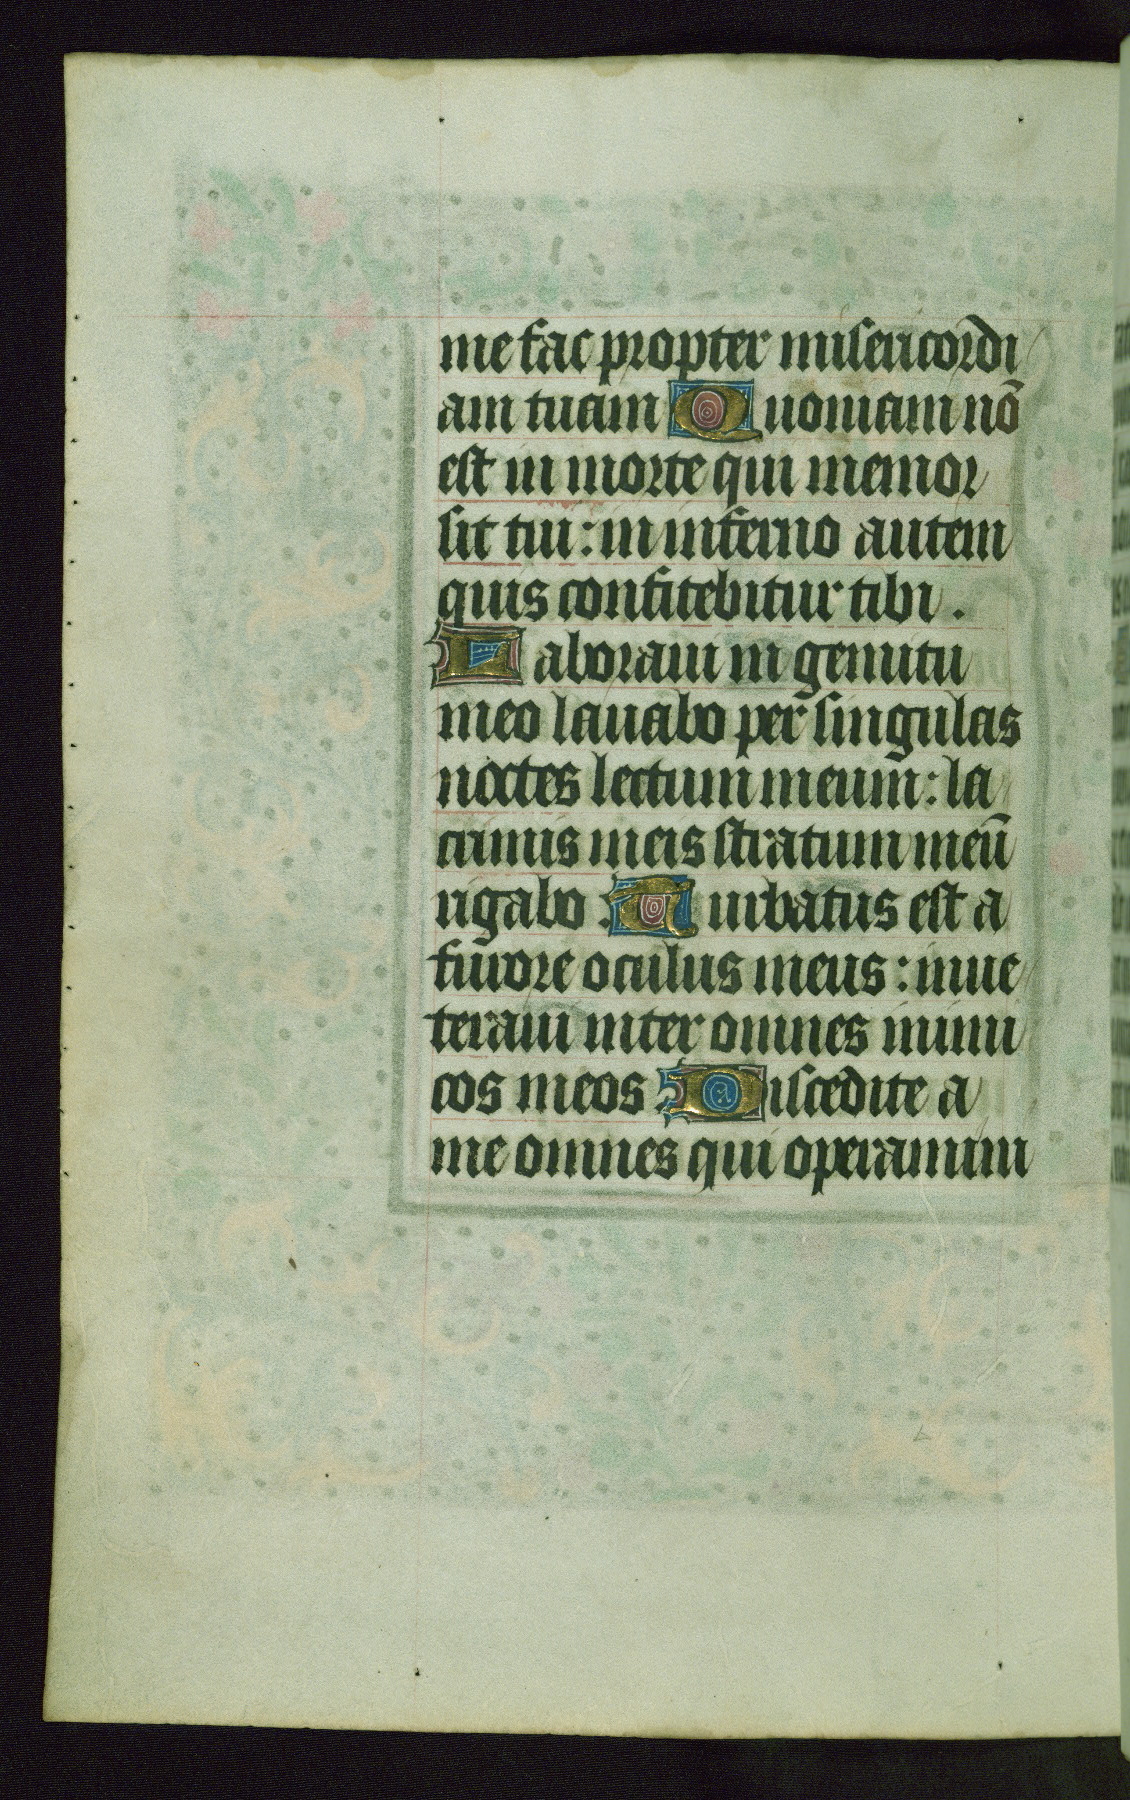 me fac propter misericordi
am tuam Quoniam nō
est in morte qui memor
sit tui: in inferno autem
quis confitebitur tibi.
Laboraui in gemitu
meo lauabo per singulas
noctes lectum meum: la
crimis meis stratum meū
rigabo. Turbatus est a
furore oculus meus: inue
teraui inter omnes inimi
cos meos Discedite a
me omnes qui operamini